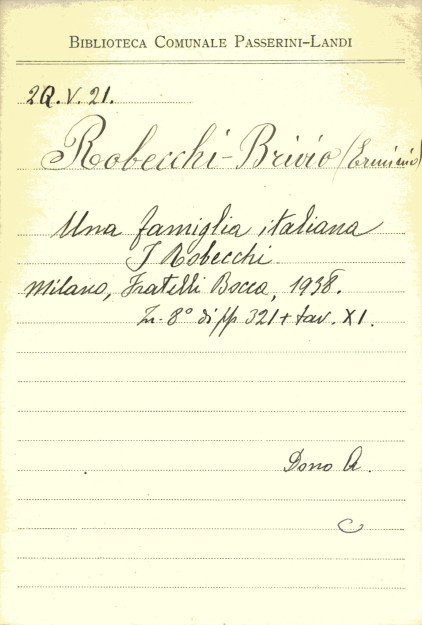 BIBLIOTECA COMUNALE PASSERINI-LANDI
2Q.V.21.
Robecchi-Brivio (Erminio)
Una famiglia italiana
I Robecchi
Milano, Fratelli Bocca, 1938.
In-8° di pp 321 + tav. XI.
Dono A.
C